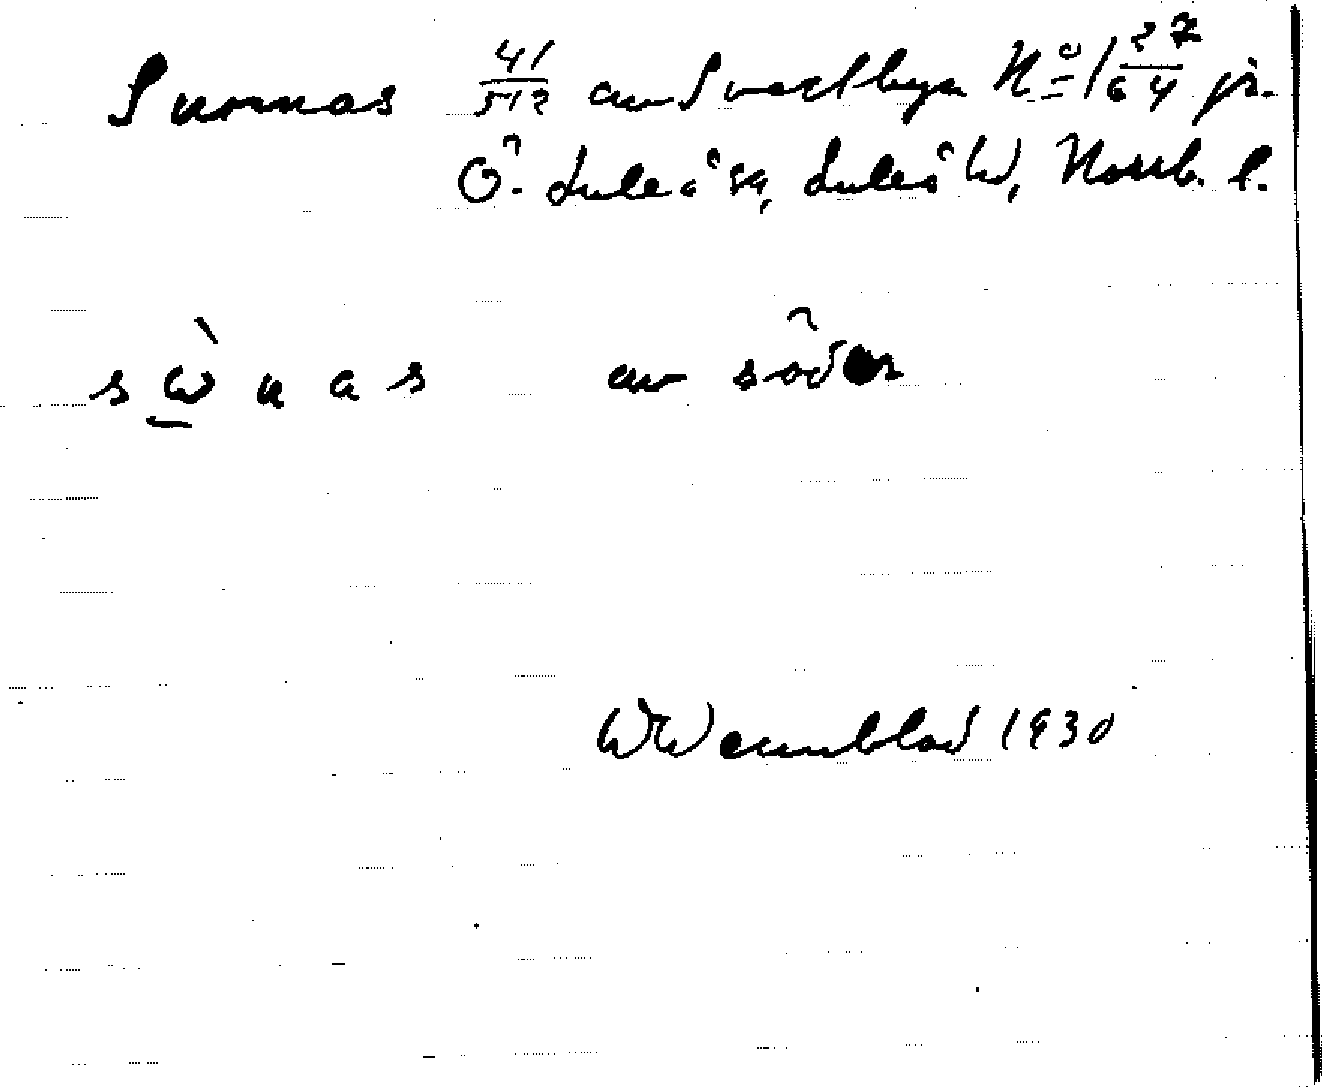 Sunnas 41/512 av Svartbyn N:o 1 27/64 jr.
Ö. Luleå sn, Luleå Norrb. l.
s ὼ̱ n a s av söder
W Wennblad 1930